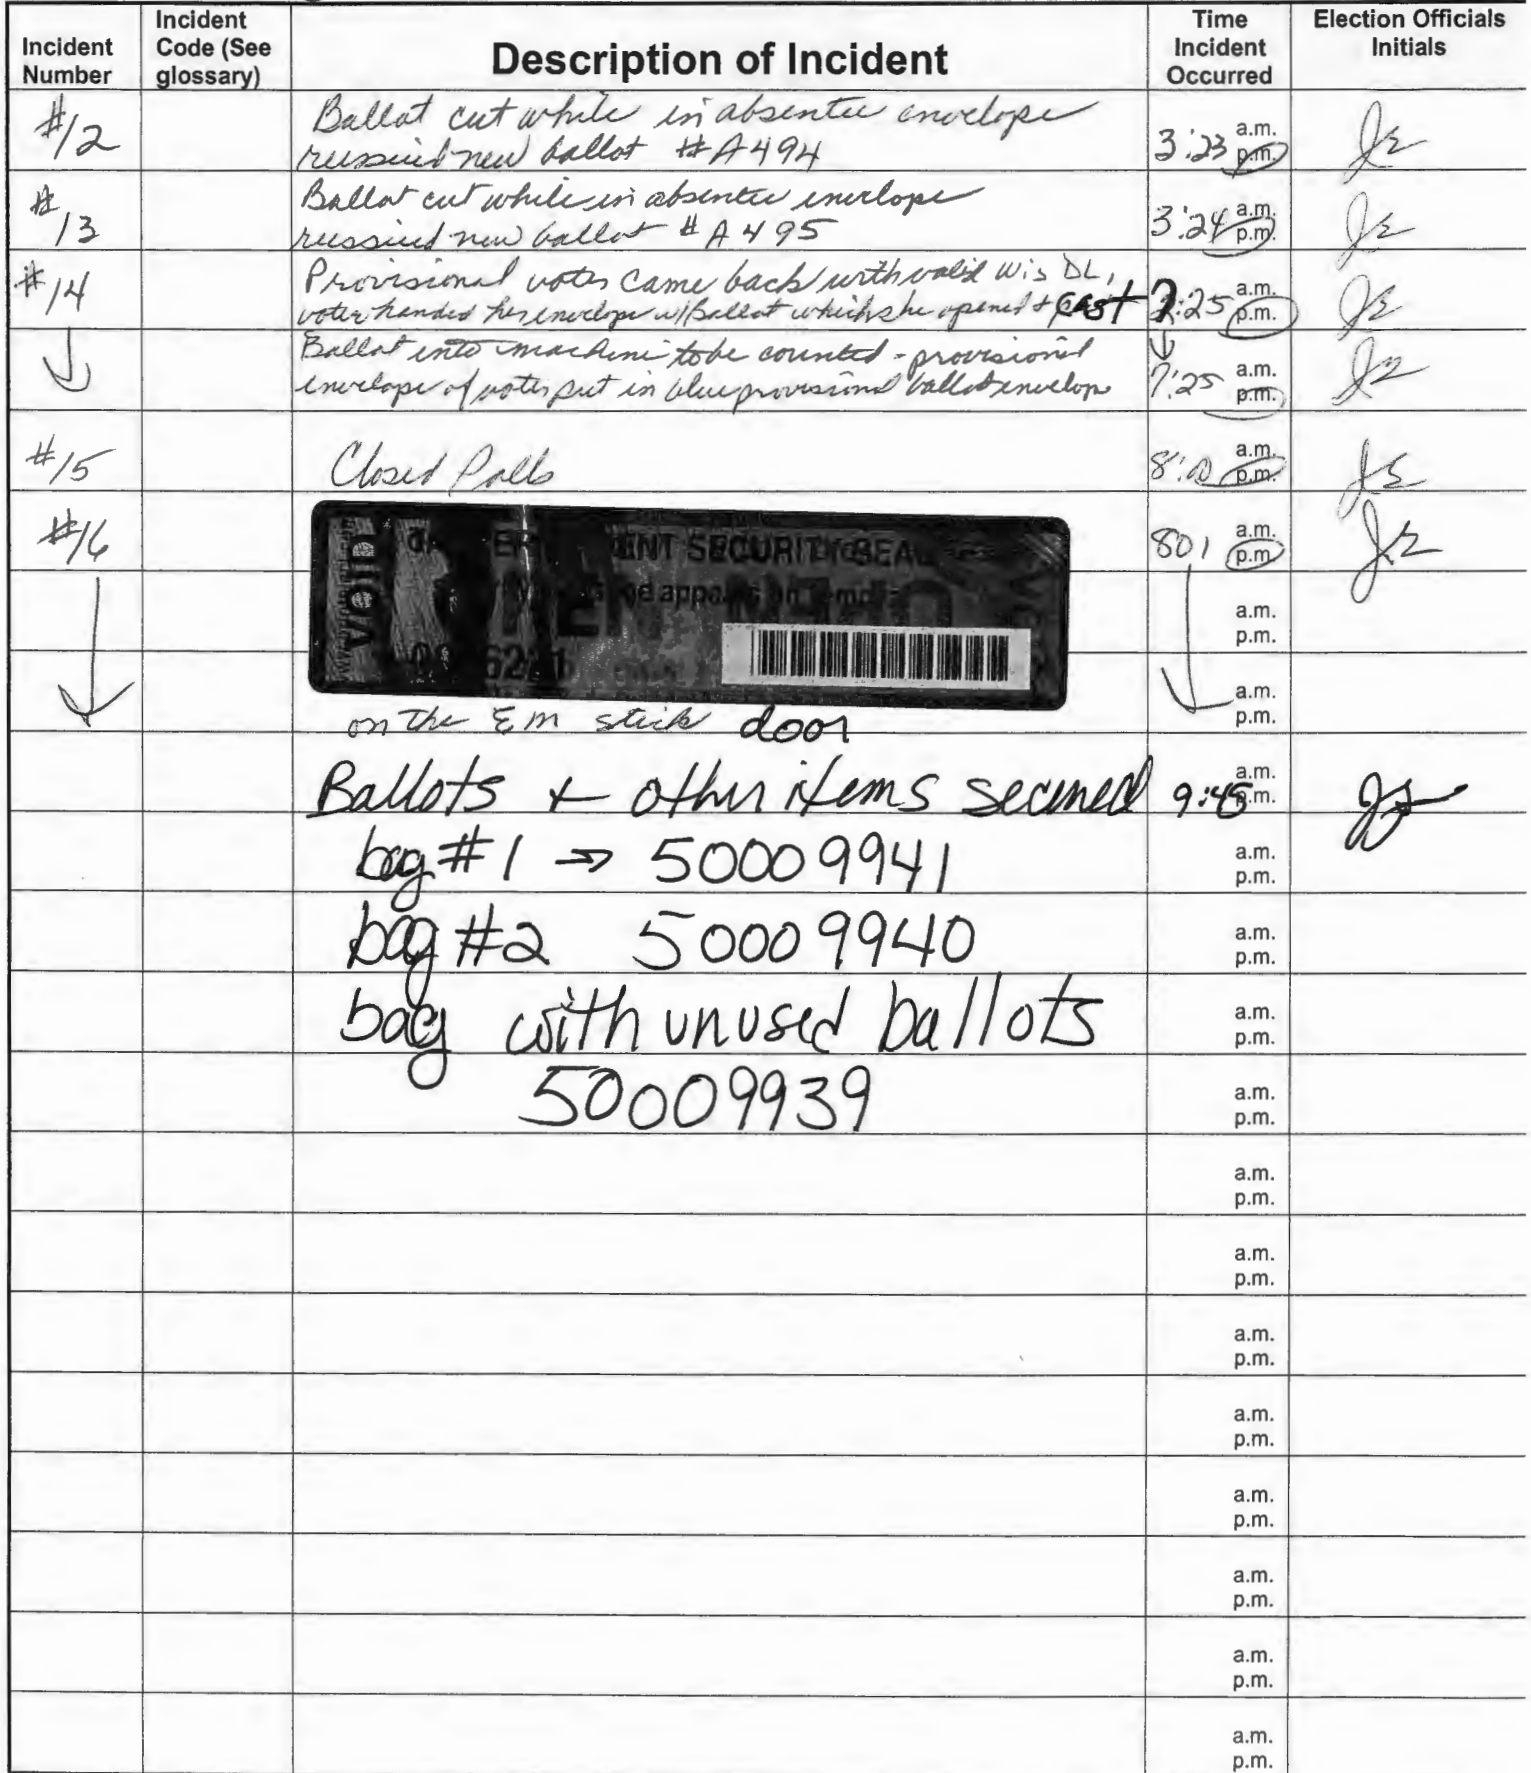 Incident Number
Incident Code (See glossary)
Description of Incident
Time Incident Occurred
Election Officials Initials
#12
Ballot cut while in absentee envelope
reissued new ballot #A494
3:23 a.m. p.m.
#13
Ballot cut while in absentee envelope
reissued new ballot #A495
3:24 a.m. p.m.
#14
Provisional voter came back with valid Wis DL,
voter handed her envelope w/Ballot which she opened + cast
7:25 a.m. p.m.
Ballot into machine to be counted - provisional
envelope of voter put in blue provisional ballot envelope
7:25 a.m. p.m.
#15
Closed Polls
8:00 a.m. p.m.
#16
SECURITY SEAL
801 a.m. p.m.
a.m.
p.m.
a.m.
p.m.
on the EM stick door
Ballots + other items secured
9:45 a.m. p.m.
bag #1 → 50009941
a.m.
p.m.
bag #2 50009940
a.m.
p.m.
bag with unused ballots
a.m.
p.m.
50009939
a.m.
p.m.
a.m.
p.m.
a.m.
p.m.
a.m.
p.m.
a.m.
p.m.
a.m.
p.m.
a.m.
p.m.
a.m.
p.m.
a.m.
p.m.